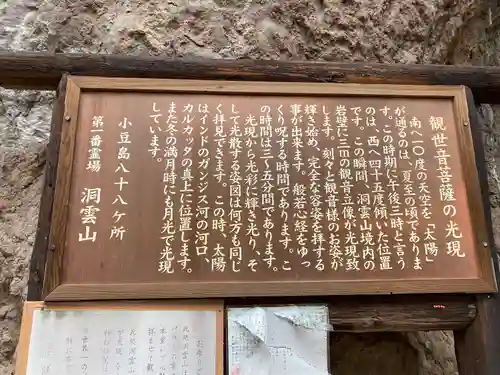 観世音菩薩の光現
南へ一〇度の天空を「太陽」
が通るのは、夏至の頃でありま
す。この時期に午後三時と言う
のは、西へ四十五度傾いた位置
です。この瞬間、洞雲山境内の
岩壁に三mの観音立像が光現致
します。刻々と観音様のお姿が
輝き始め、完全な容姿を拝する
事が出来ます。般若心経をゆっ
くり呪する時間であります。こ
の時間は三〜五分間であります。
光現から光彩に輝き光り、そ
して光散する姿図は何方も同じ
く拝見できます。この時、太陽
はインドのガンジス河の河口、
カルカックの真上に位置します。
また冬の満月時にも月光で光現
しています。
小豆島八十八ヶ所
第一番霊場　洞雲山